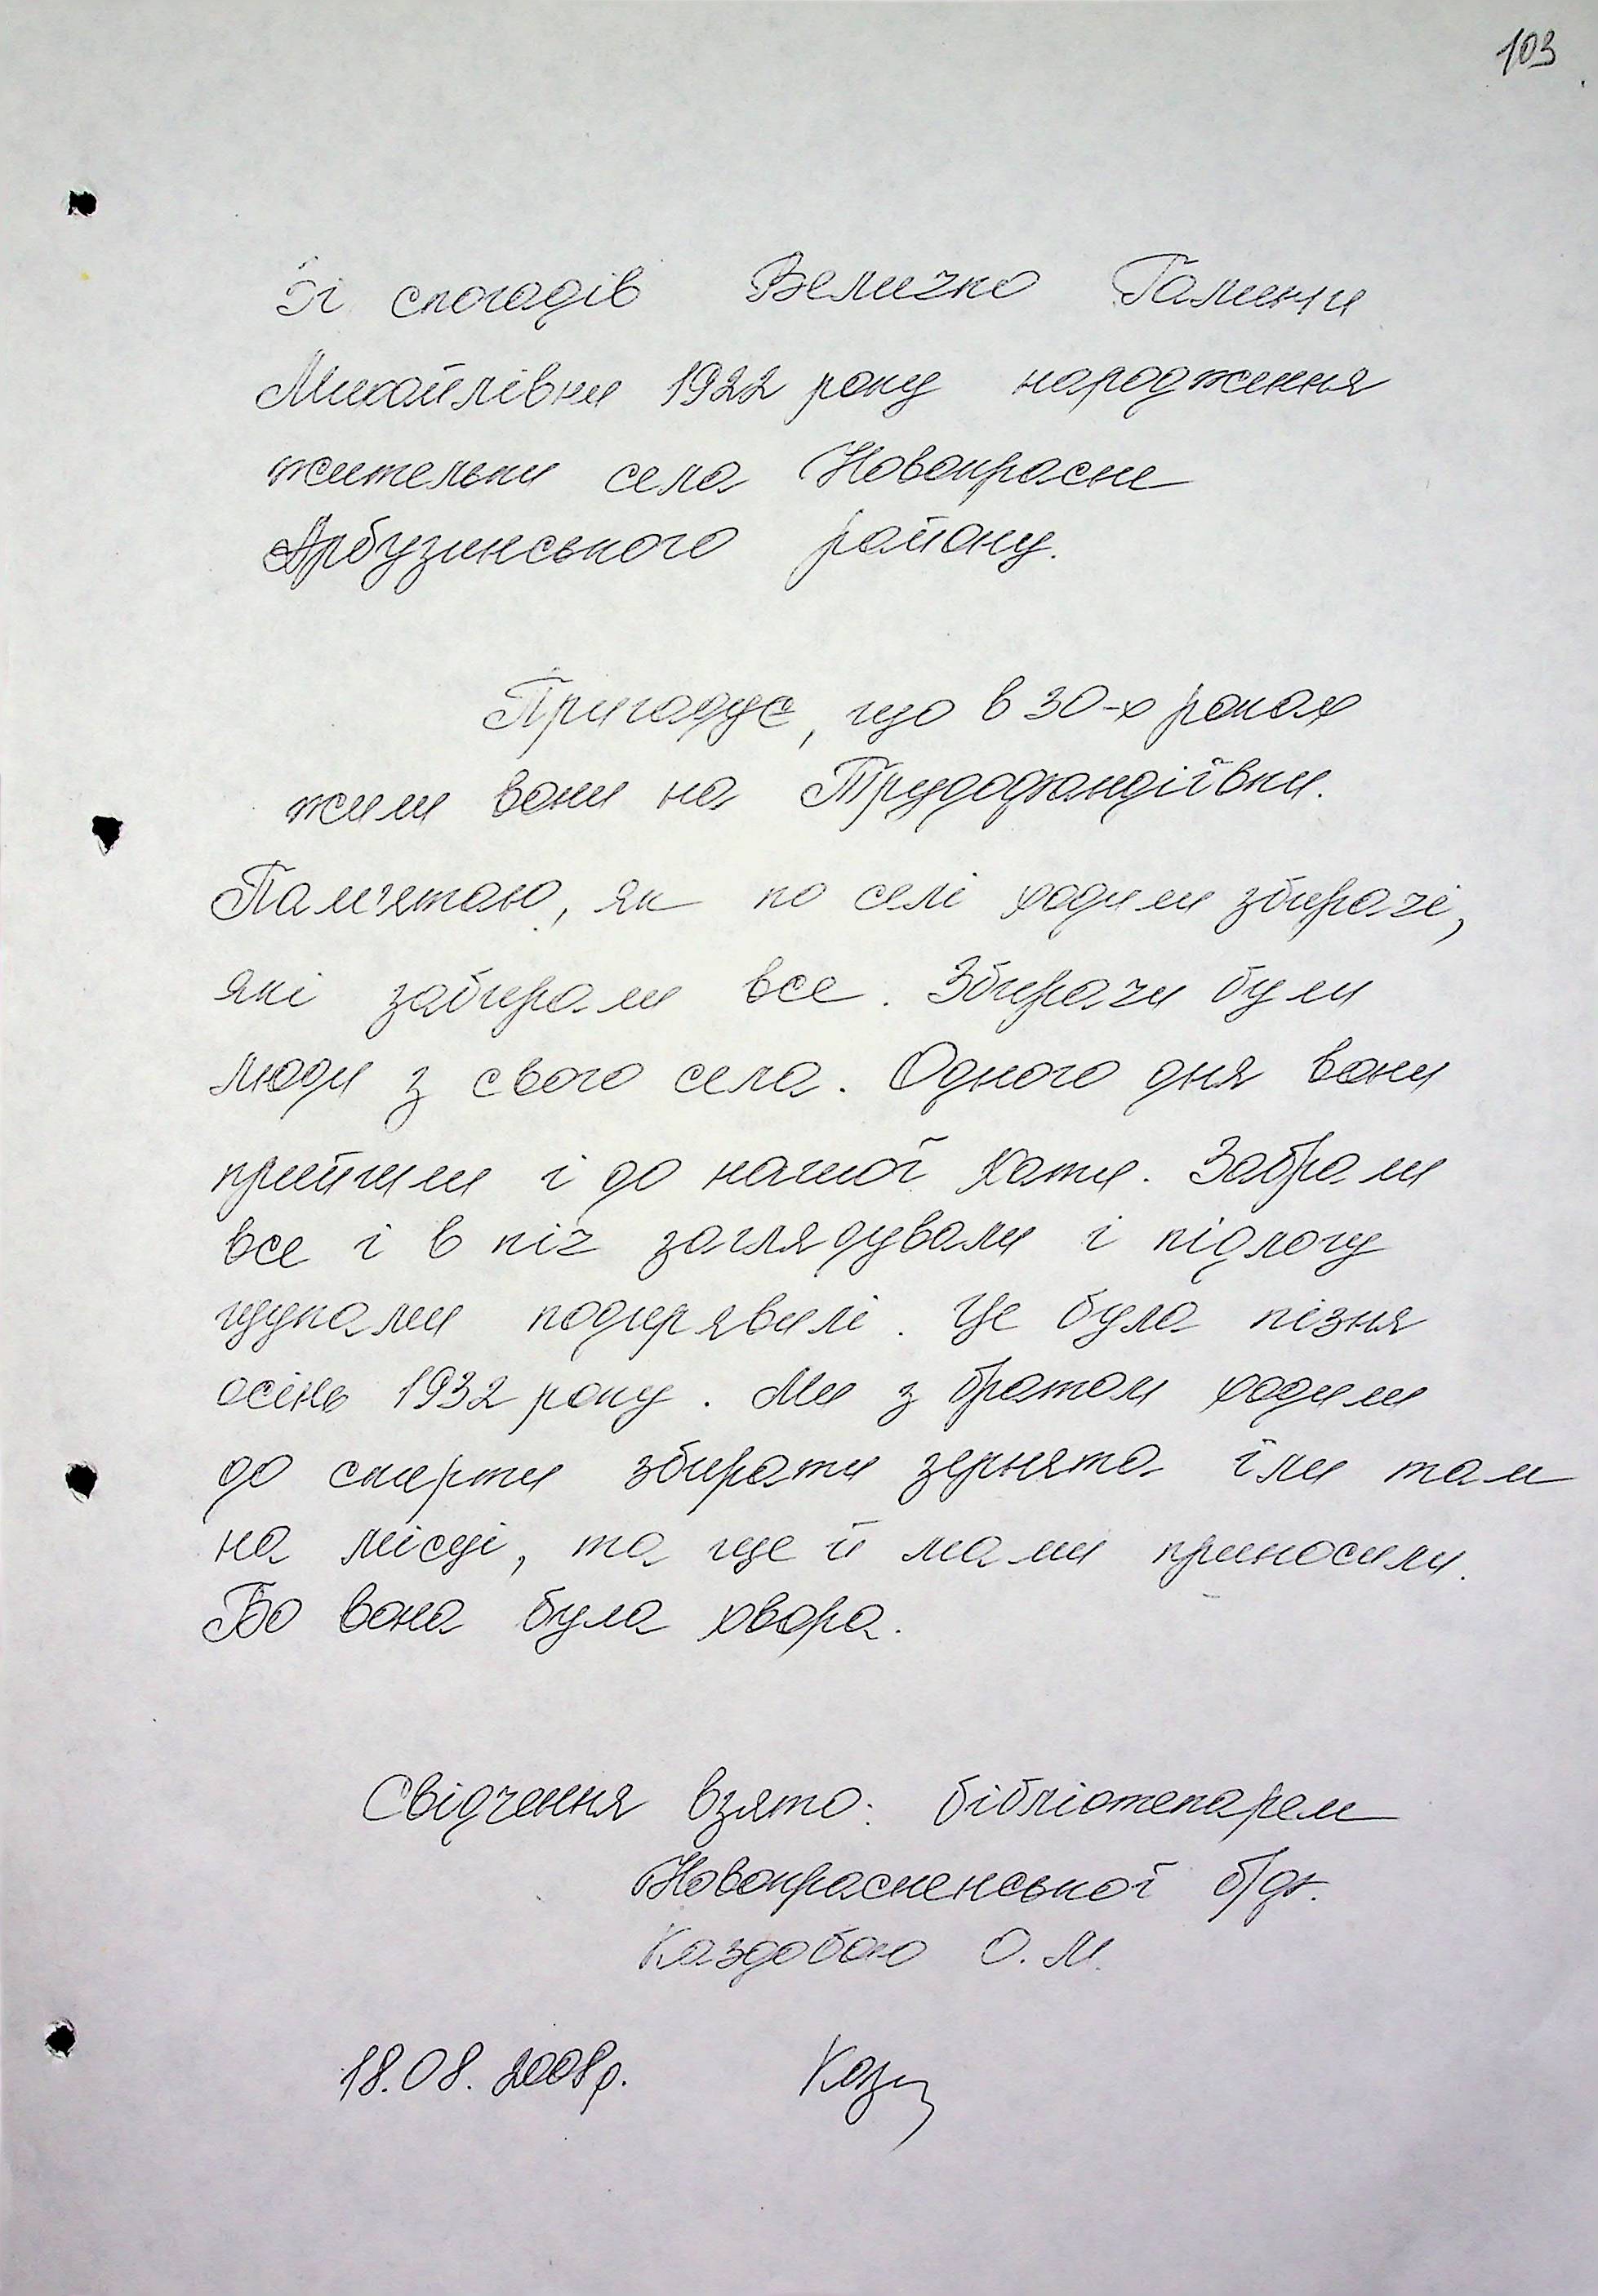 103
Зі спогадів Величко Галини
Михайлівни 1922 року народження
жительки села Новокрасне
Арбузинського району.
Пригадує, що в 30-х роках
жили вони на Трудолюбівки.
Пам'ятаю, як по селі ходили збирачі,
які забирали все. Збирачи були
люди з свого села. Одного дня вони
прийшли і до нашої хати. Забрали
все і в піч заглядували і підлогу
щупами подирявилі. Це була пізня
осінь 1932 року. Ми з братом ходили
до скирти збирати зернята їли там
на місці, та ще й мами приносили.
Бо вона була хвора.
Свідчення взято: бібліотекарем
Новокрасненської б/ф.
Каздобою О. М.
18.08.2008р.